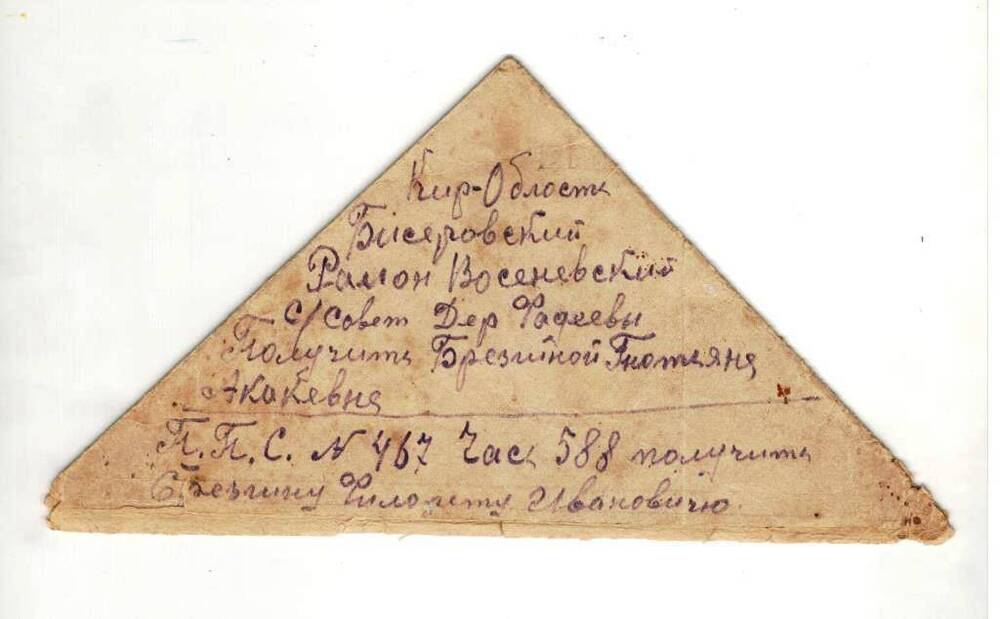 Кир-Область
Бисеровский
Раион Восеневский
С/Совет Дер Фадеевы
Получить Брезгиной Татьяне
Акакевне
П.П.С. N 467 Часть 588 получить
Брезгину Филогнту Ивановичю
но